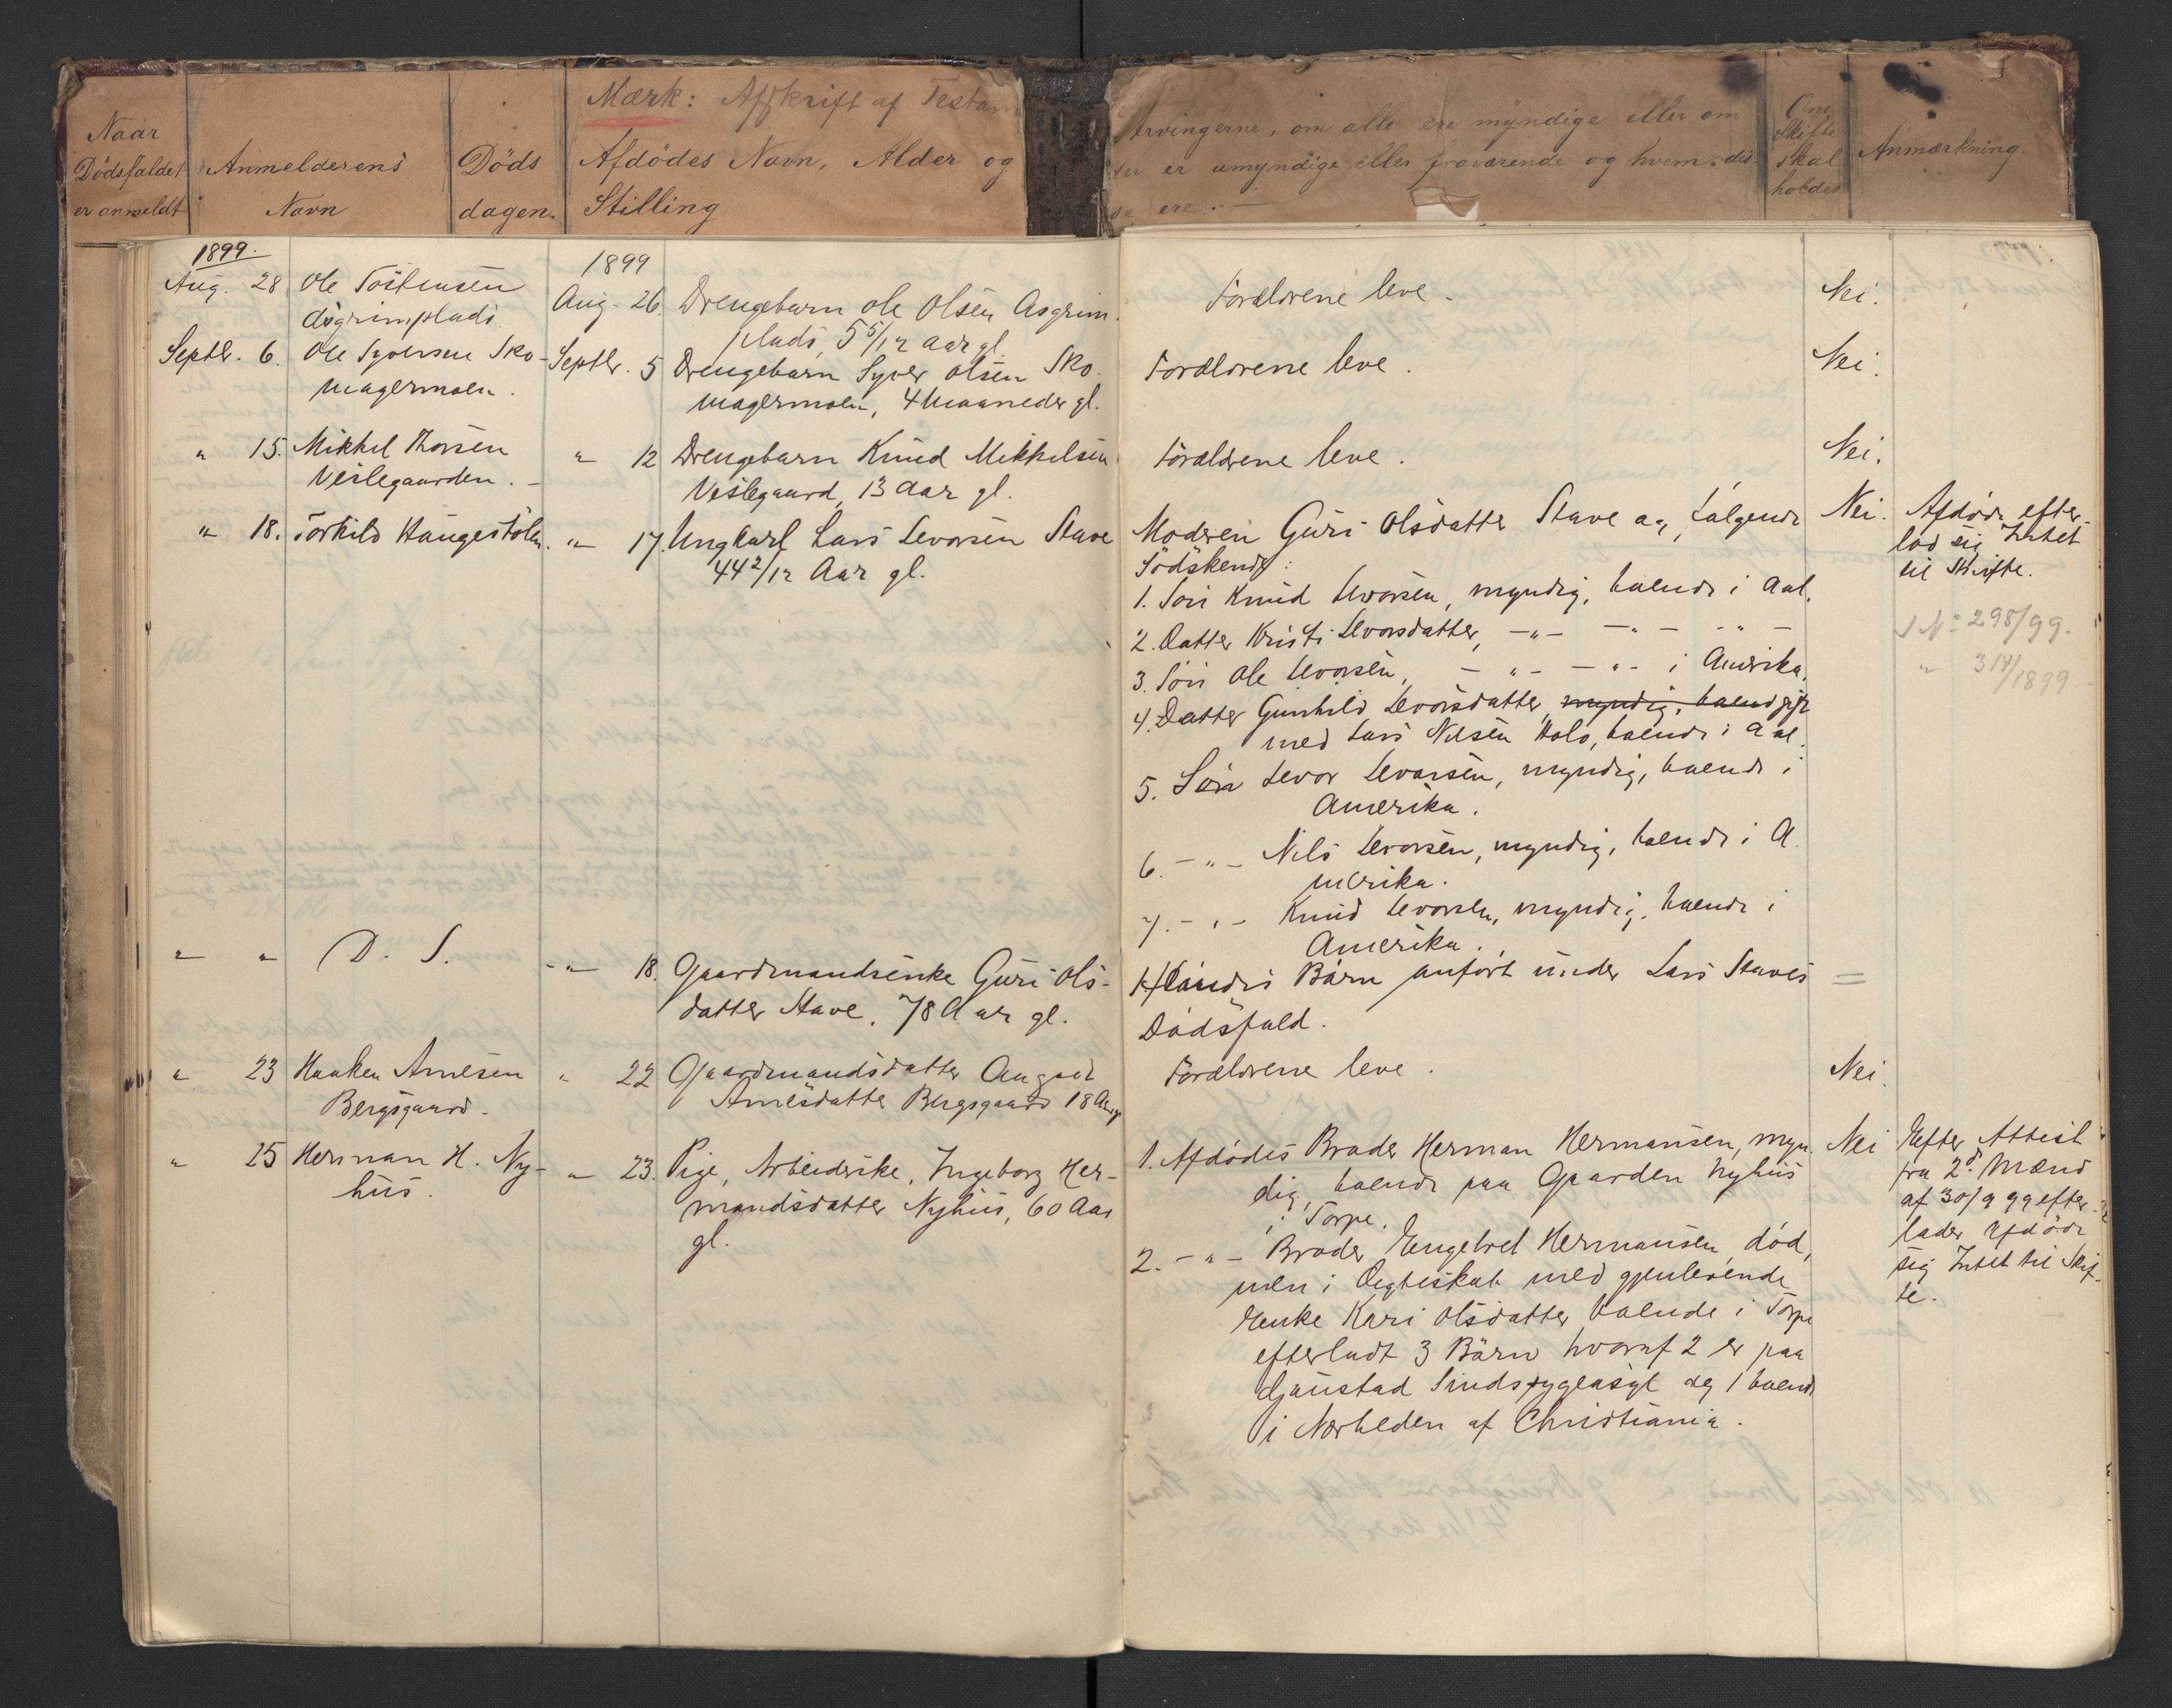 Mærk: Afskrift af Testam
Naar
Dödsfaldet
er anmeldt
Anmelderens
Navn
Döds
dagen.
Afdödes Navn, Alder og
Stilling
Arvingerne, om alle ere myndige eller om
der er umyndige eller fraværende og hvem dis
se ere. —
Om
Skifte
skal
holdes
Anmærkning.
1899.
1899
Aug. 28
Ole Tostensen
Asgrimplads
Aug. 26.
Drengebarn Ole Olsen Asgrim
plads, 5 5/12 Aar gl.
Forældrene leve.
Nei.
Septbr. 6.
Ole Syversen Sko-
magermoen.
Septbr. 5
Drengebarn Syver Olsen Sko-
magermoen, 4 Maaneder gl.
Forældrene leve.
Nei.
" 15.
Mikkel Thorsen
Veslegaarden. -
" 12
Drengebarn Knud Mikkelsen
Veslegaard, 13 Aar gl.
Forældrene leve.
Nei.
" 18.
Torkild Haugestølen.
" 17.
Ungkarl Lars Levorsen Stave
44 2/12 Aar gl.
Moderen Guri Olsdatter Stave og følgende
Södskende:
1. Sön Knud Levorsen, myndig, boende i Aal.
2. Datter Kristi Levorsdatter, -"- -"- -"-
3. Sön Ole Levorsen, -"- -"- i Amerika.
4. Datter Gunhild Levorsdatter, myndig, boend gift
med Lars Nilsen Holo, boende i Aal.
5. Sön Levor Levorsen, myndig, boende i
Amerika.
6. -"- Nils Levorsen, myndig, boende i A-
merika.
7. -"- Knud Levorsen, myndig, boende i
Amerika.
Nei.
Afdöde efter-
lod sig Intet
til Skifte.
J № 298/99.
" 314/1899
" "
D. S.
-"- 18.
Gaardmandsenke Guri Ols-
datter Stave, 78 Aar gl.
Hendes Börn anfört under Lars Staves
Dödsfald.
=
" 23
Haaken Arnesen
Bergsgaard.
" 22
Gaardmandsdatter Angod
Arnesdatter Bergsgaard 18 Aar gl
Forældrene leve.
Nei.
" 25
Herman H. Ny-
hus.
" 23.
Pige, Arbeiderske, Ingeborg Her-
mandsdatter Nyhus, 60 Aar
gl.
1. Afdödes Broder Herman Hermansen, myn-
dig, boende paa Gaarden Nyhus
i Torpe.
2. -"- Broder Engebret Hermansen, död,
men i Ægteskab med gjenlevende
Enke Kari Olsdatter boende i Torpe
efterladt 3 Börn hvoraf 2 er paa
Gaustad Sindsygeasyl og 1 boende
i Nærheden af Christiania.
Nei
Efter Attest
fra 2de Mænd
af 30/9 99 efter-
lader Afdöde
sig Intet til Skif-
te.